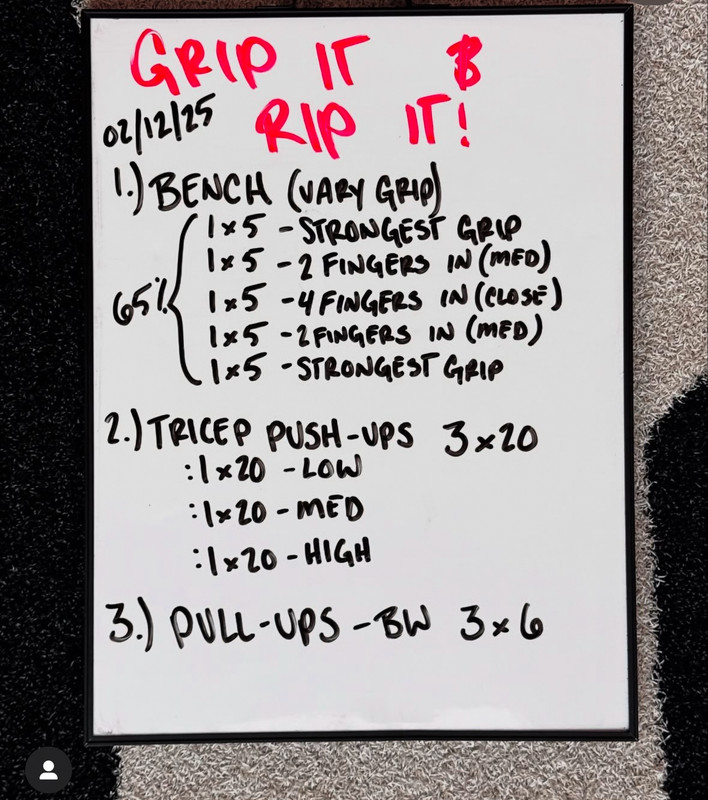 GRIP IT &
RIP IT!
02/12/25
1.) BENCH (VARY GRIP)
65% { 1x5 - STRONGEST GRIP
1x5 - 2 FINGERS IN (MED)
1x5 - 4 FINGERS IN (CLOSE)
1x5 - 2 FINGERS IN (MED)
1x5 - STRONGEST GRIP
2.) TRICEP PUSH-UPS 3x20
:1x20 - LOW
:1x20 - MED
:1x20 - HIGH
3.) PULL-UPS - BW 3x6